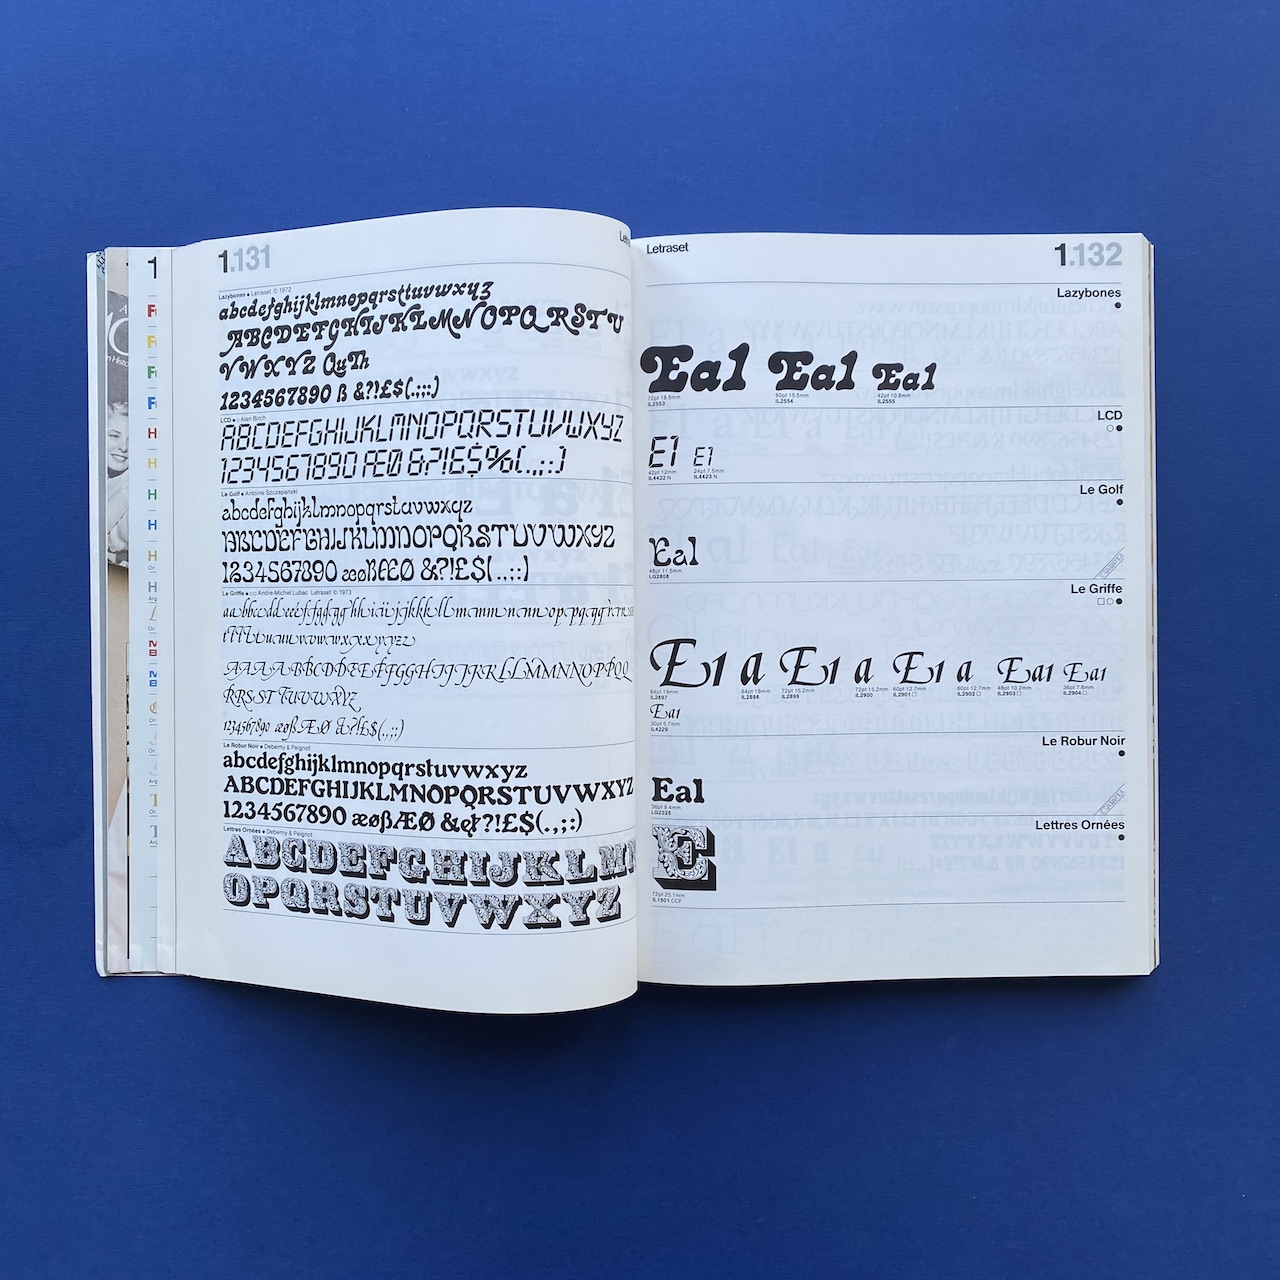 1.131
Lazybones ● Letraset © 1972
abcdefghijklmnopqrsttuvwxyz
ABCDEFGHIJKLMNOPQRSTU
VWXYZ QuTh
1234567890 ß &?!£$(.,;:)
LCD ● Alan Birch
ABCDEFGHIJKLMNOPQRSTUVWXYZ
1234567890 ÆØ &?!£$%(.,;:)
Le Golf ● Antoine Szczepanski
abcdefghijklmnopqrstuvwxyz
ABCDEFGHIJKLMNOPQRSTUVWXYZ
1234567890 æøßÆØ &?!£$(.,;:)
Le Griffe ● Andre-Michel Lubac Letraset © 1973
1234567890 æøß ÆØ &?!£$(.,;:)
Le Robur Noir ● Deberny & Peignot
abcdefghijklmnopqrstuvwxyz
ABCDEFGHIJKLMNOPQRSTUVWXYZ
1234567890 æøßÆØ &?!£$(.,;:)
Lettres Ornées ● Deberny & Peignot
ABCDEFGHIJKLM
OPQRSTUVWXYZ
Letraset
1.132
Lazybones
Ea1 Ea1 Ea1
72pt 18.5mm 60pt 15.5mm 42pt 10.8mm
IL2553 IL2554 IL2555
LCD
E1 E1
42pt 12mm 24pt 7.5mm
IL4422 N IL4423 N
Le Golf
Ea1
48pt 11.5mm
LG2808
Le Griffe
E1 a E1 a E1 a Ea1 Ea1
84pt 19mm 84pt 19mm 72pt 15.2mm 72pt 15.2mm 60pt 12.7mm 60pt 12.7mm 48pt 10.2mm 36pt 7.6mm
IL2897 IL2898 IL2899 IL2900 IL2901 IL2902 IL2903 IL2904
Ea1
30pt 5.7mm
IL4229
Le Robur Noir
Ea1
36pt 9.4mm
LG2325
Lettres Ornées
E
72pt 25.1mm
IL1501 CCF